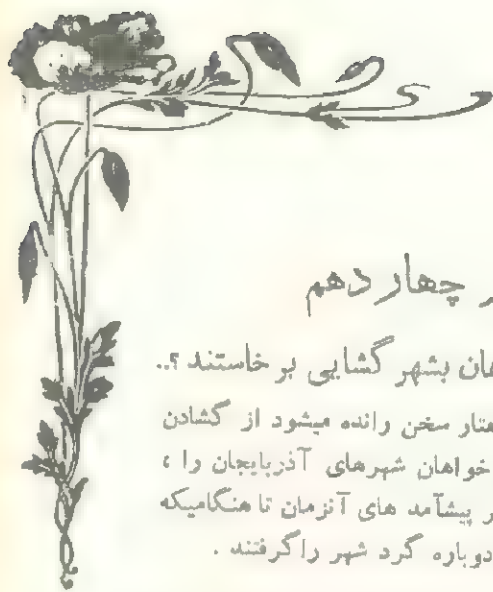 چهاردهم
بشهر گشایی برخاستند ؟..
سخن رانده میشود از گشادن
شهرهای آذربایجان را ،
پیشآمد های آنزمان تا هنگامیکه
دوباره گرد شهر را گرفتند .